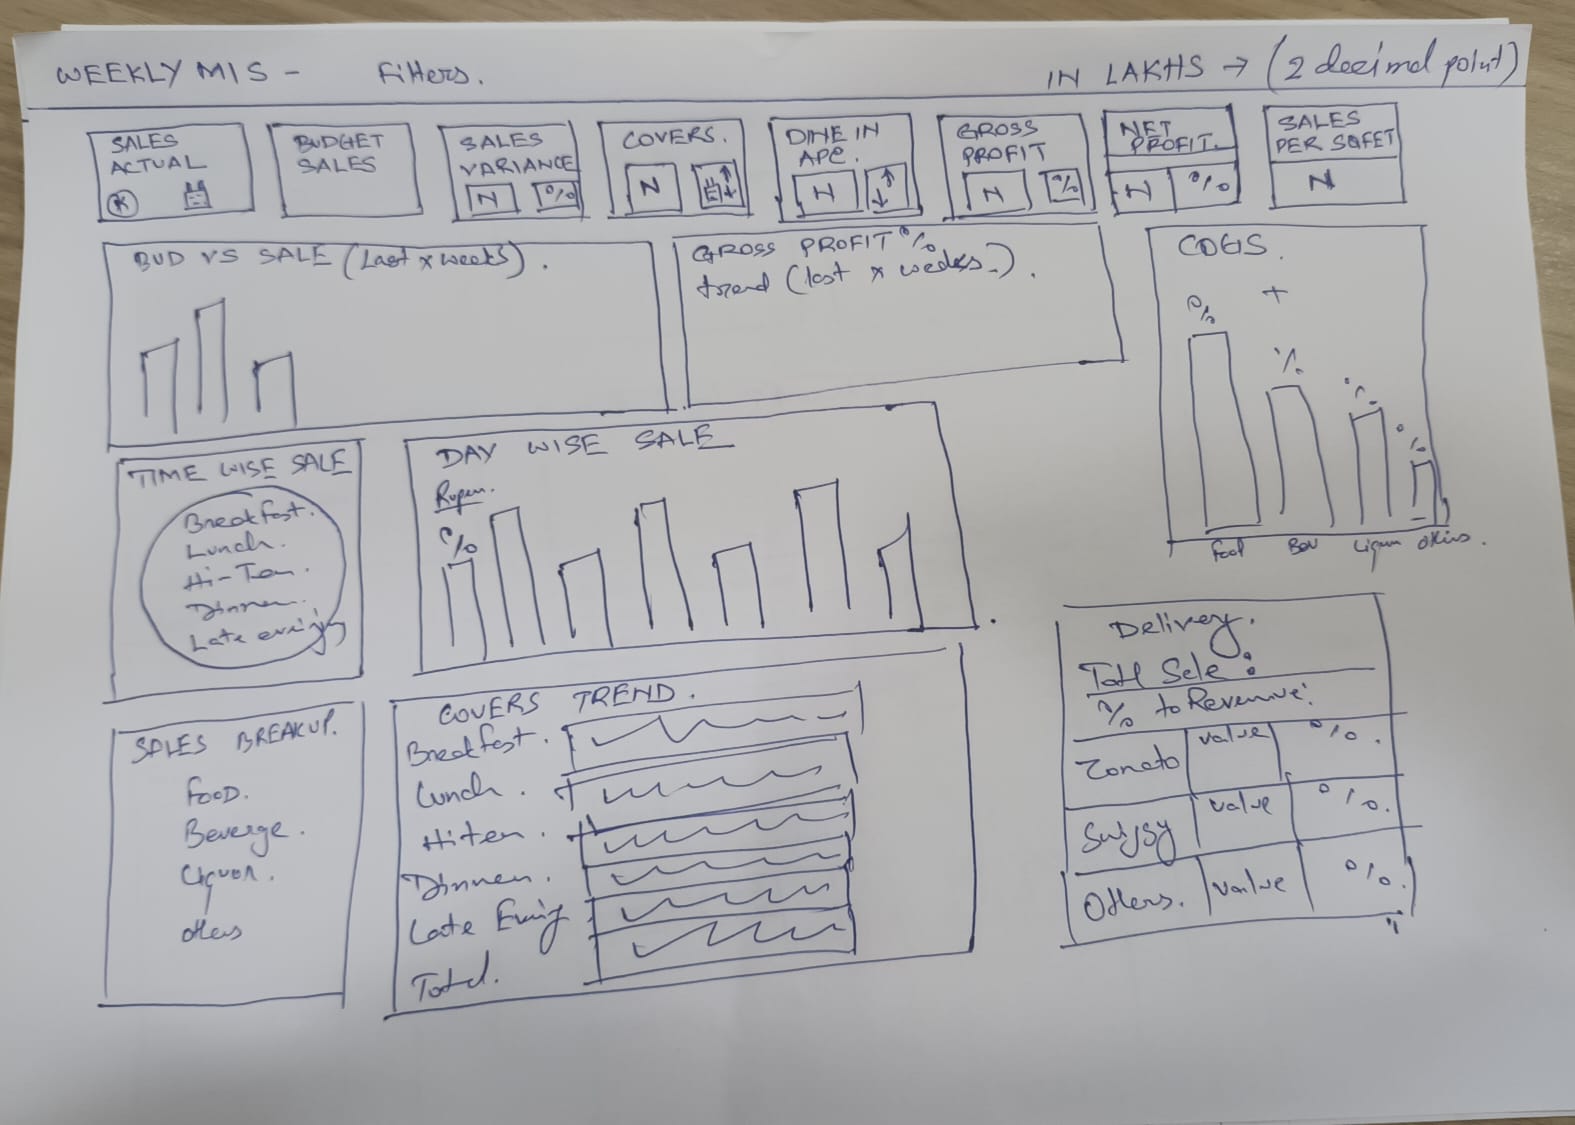 WEEKLY MIS - Filters.
IN LAKHS → (2 decimal point)
SALES
ACTUAL
K
BUDGET
SALES
SALES
VARIANCE
N %
COVERS.
N
DINE IN
APC.
N
GROSS
PROFIT
N %
NET
PROFIT.
N %
SALES
PER SQFET
N
BUD VS SALE (Last x weeks).
GROSS PROFIT %
trend (last x weeks.).
COGS.
+
%
%
%
%
Food Bev Liquor Others.
TIME WISE SALE
Breakfast.
Lunch.
Hi-Tea.
Dinner.
Late evening
DAY WISE SALE
%
SALES BREAKUP.
FOOD.
Beverge.
Liquor.
Others
COVERS TREND.
Breakfast.
Lunch.
Hitea.
Dinner.
Late Evenig
Total.
Delivery.
Totl Sale :
% to Revenue:
Zomato value %.
Swiggy value %.
Others. value %.